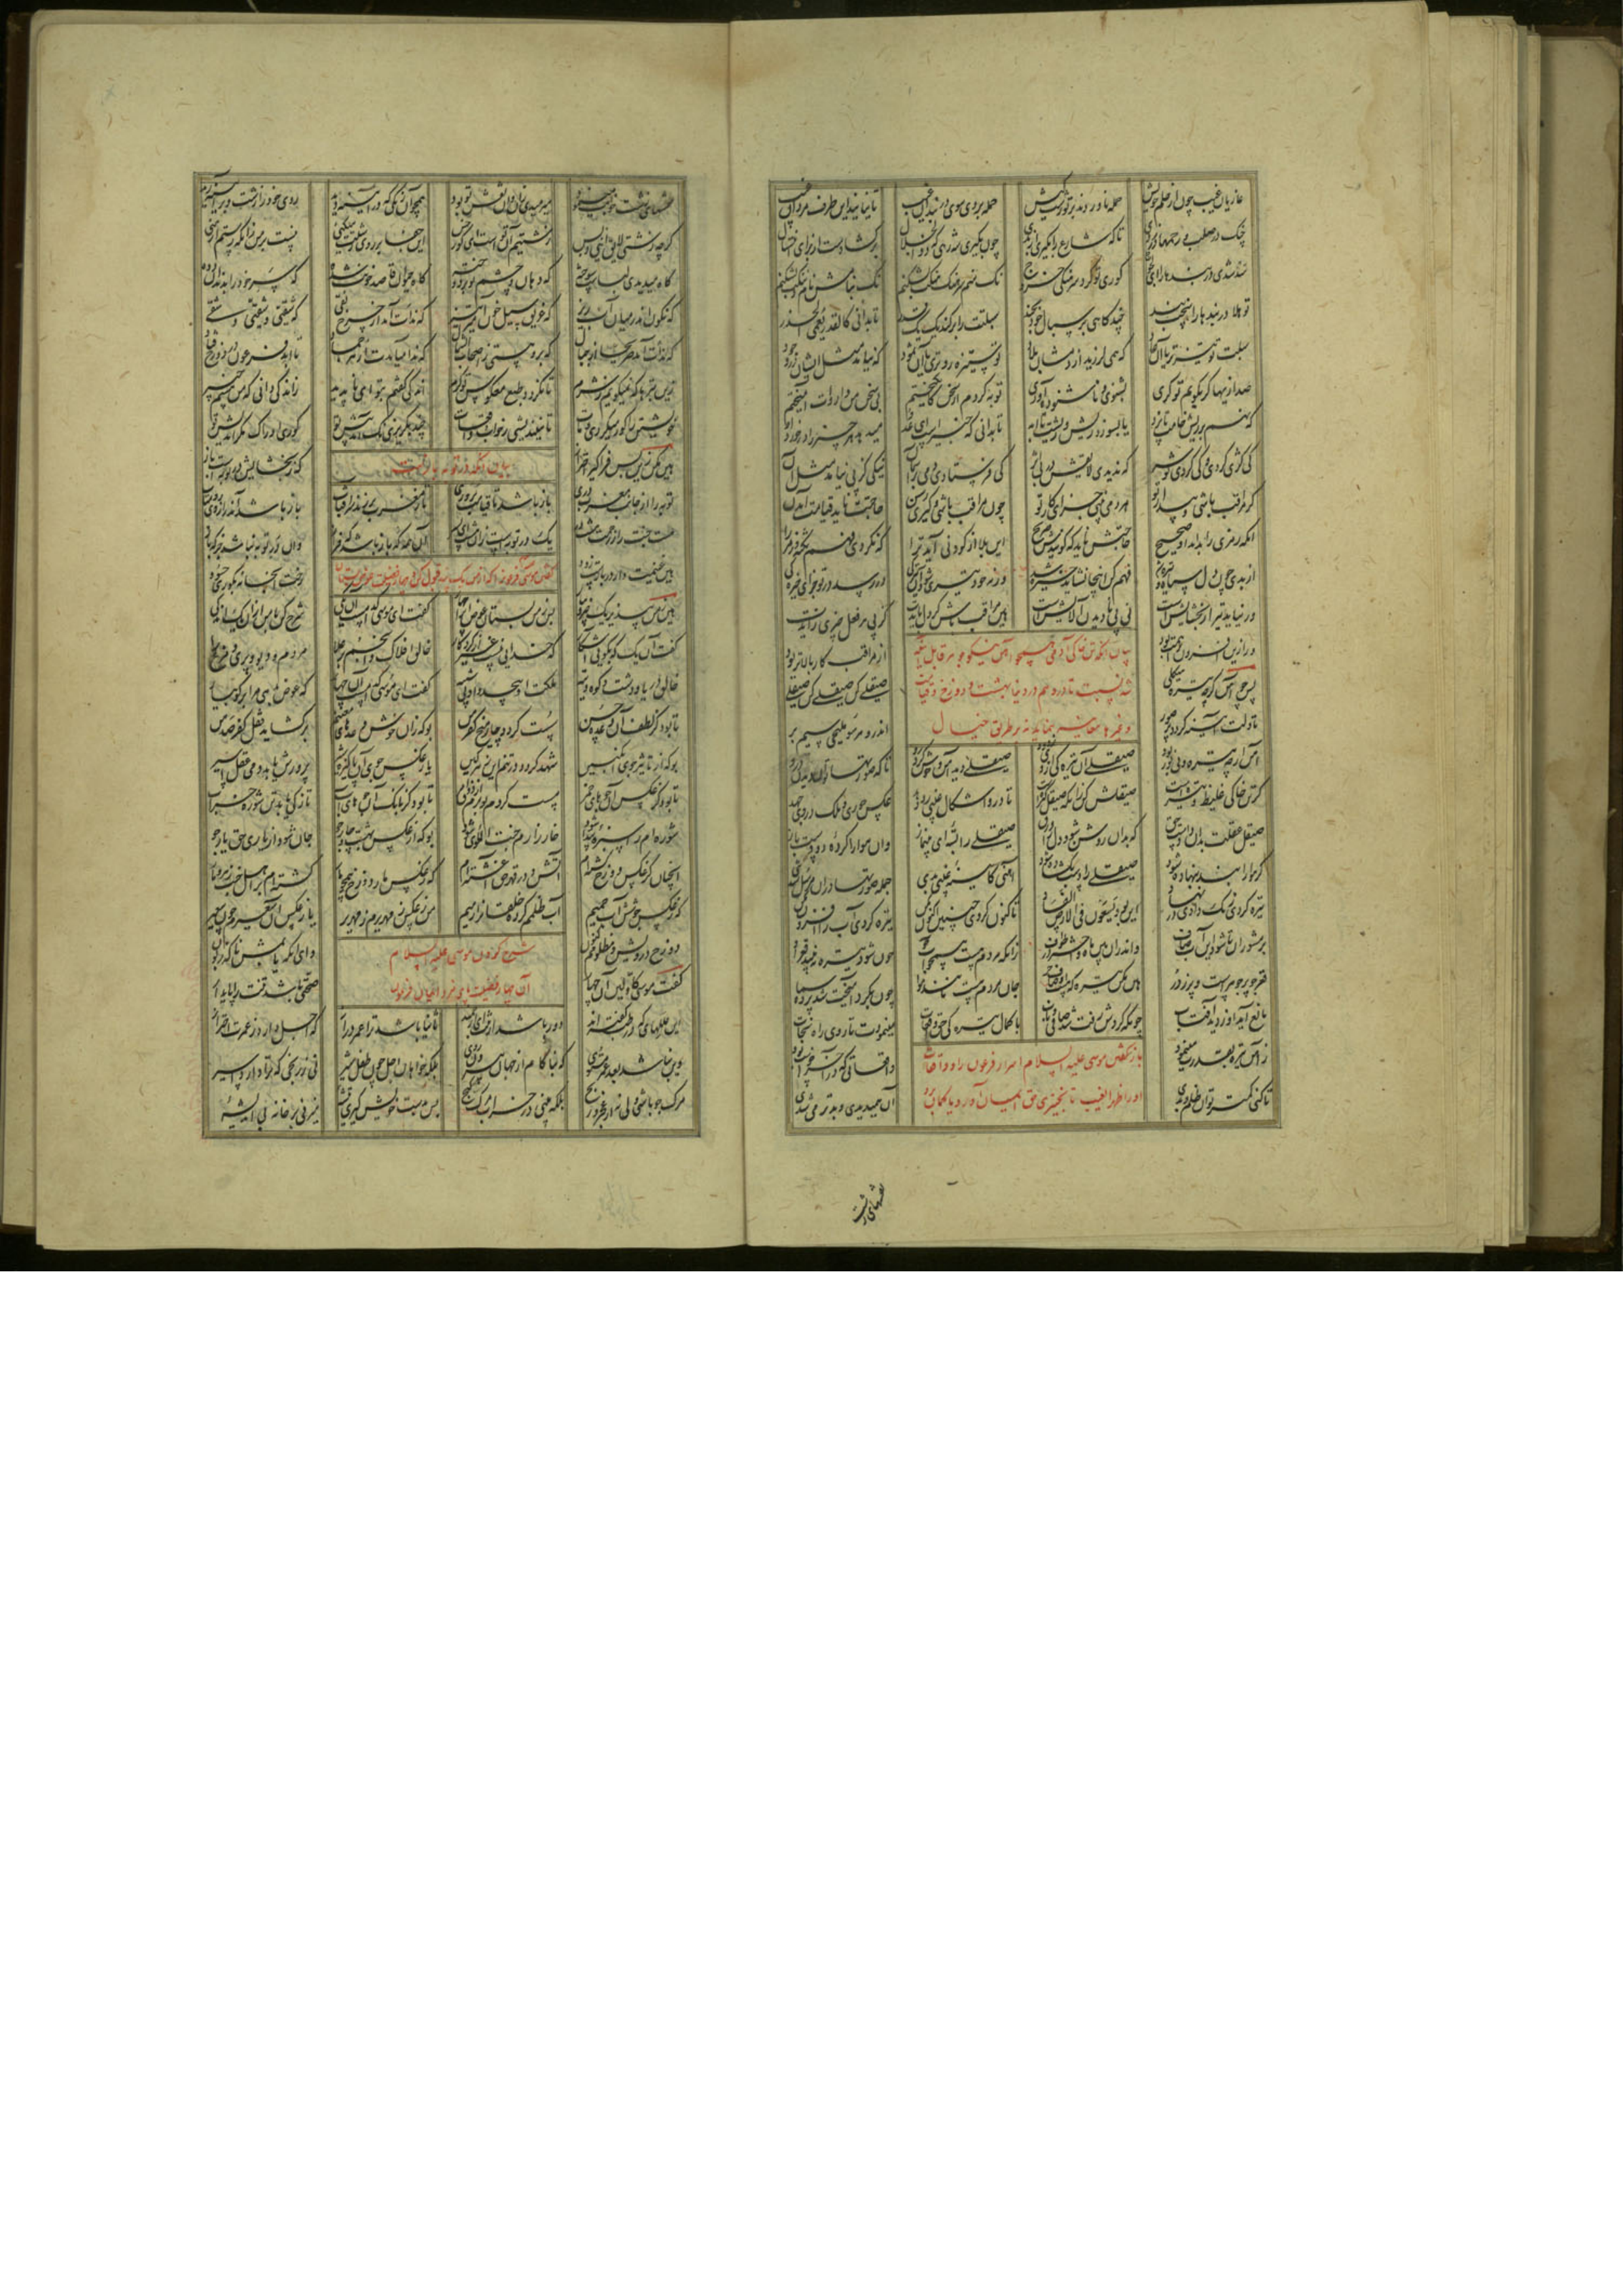 غازیان غیب چون از حلم خویش حمله ناوردند بر تو زشت کیش حمله بردی سوی دربندان غیب تا نیایند این طرف مردان غیب
چنگ در صلب و رحمها در زدی تا که شارع را بگیری از بدی چون بگیری شه رهی که ذوالجلال برگشادست از برای
سد شدی دربندها را ای لجوج کوری تو کرد سرهنگی خروج نک منم سرهنگ هنگت بشکنم نک بنامش نام و ننگت بشکنم
تو هلا دربندها را سخت بند چند گاهی بر سبال خود بخند سبلتت را برکند یک یک قدر تا بدانی کالقدر یعمی الحذر
سبلت تو تیزتر یا آن عاد که همی لرزید از دمشان بلاد تو ستیزه روتری یا آن ثمود که نیامد مثل ایشان در وجود
صد ازینها گر بگویم تو کری بشنوی و ناشنوده آوری توبه کردم از سخن کانگیختم بی سخن من دارویت آمیختم
که نهم بر ریش خامت تا پزد یا بسوزد ریش و ریشت تا ابد تا بدانی که خبیر است ای عدو میدهد هر چیز را درخورد او
کی کژی کردی و کی کردی تو شر که ندیدی لایقش در پی اثر کی فرستادی دمی بر آسمان نیکیی کز پی نیامد مثل آن
گر مراقب باشی و بیدار تو هر دمی بینی جزای کار تو چون مراقب باشی و گیری رسن حاجتت ناید قیامت آمدن
آنکه رمزی را بداند او صحیح حاجتش ناید که گویندش صریح این بلا از کودنی آید ترا که نکردی فهم نکته و رمزها
از بدی چون دل سیاه و تیره شد فهم کن اینجا نشاید خیره شد ورنه خود تیری شود آن تیرگی در رسد در تو جزای خیرگی
ور نیاید تیر از بخشایش است نی پی نادیدن آلایش است هین مراقب باش گر دل بایدت کز پی هر فعل چیزی زایدت
ور ازین افزون ترا همت بود از مراقب کار بالاتر رود
پس چو آهن گرچه تیره هیکلی صیقلی کن صیقلی کن صیقلی
تا دلت آینه گردد پر صور اندرو هر سو ملیحی سیم بر
بیان آنکه تن خاکی آدمی همچو آهن نیکو جوهر قابل آینه
شدنست تا درو هم در دنیا بهشت و دوزخ و قیامت
و غیرها معاینه بنماید نه بر طریق خیال
آهن ارچه تیره و بی نور بود صیقلی آن تیرگی از وی زدود صیقلی دید آهن و خوش کرد رو تا که صورتها توان دید اندرو
گر تن خاکی غلیظ و تیره است صیقلش کن زانکه صیقل گیره است تا درو اشکال غیبی رو دهد عکس حوری و ملک در وی جهد
صیقل عقلت بدان دادست حق که بدان روشن شود دل را ورق صیقلی را بسته ای بی نماز وان هوا را کرده دو دست باز
گر هوا را بند بنهاده شود صیقلی را دست بگشاده شود آهنی کاینه غیبی بدی جمله صورتها در آن مرسل شدی
تیره کردی زنگ دادی در نهاد این بود یسعون فی الارض الفساد تا کنون کردی چنین اکنون مکن تیره کردی آب را افزون مکن
بر مشوران تا شود این آب صاف واندران بین ماه و اختر در طواف زانکه مردم هست همچون آب جو چون شود تیره نبینی قعر او
قعر جو پر جوهر است و پر ز در هین مکن تیره که هست او صاف حر جان مردم هست مانند هوا چون بگرد آمیخت شد پرده سما
مانع آید او ز دید آفتاب چونکه گردش رفت شد صافی و ناب با کمال تیرگی حق واقعات مینمودت تا روی راه نجات
باز گفتن موسی علیه السلام اسرار فرعون را و واقعات
او را ظهر الغیب تا بخبیری حق ایمان آورد یا گمان برد
ز آهن تیره بقدرت مینمود واقعاتی که در آخر خواست بود
تا کنی کمتر تو آن ظلم و بدی آن همیدیدی و بدتر میشدی
نقشهای زشت
نقشهای زشت خوابت مینمود میرمیدی زان و آن نقش تو بود همچو آن زنگی که در آینه دید روی خود را زشت و بر آینه رید
که چه زشتی لایق اینی و بس زشتیم آن تو است ای کور خس این حدث بر روی زشتت میکنی نیست بر من زانکه هستم روشنی
گاه میدیدی لباست سوخته گه دهان و چشم تو بردوخته گاه حیوان قاصد خونت شده گه سر خود را بدندان دده
گه نگون اندر میان آب ریز گه غریق سیل خون آمیز تیز گه ندات آمد ازین چرخ نقی که شقیی و شقیی و شقی
گه ندات آمد صریحا از جبال که برو هستی ز اصحاب الشمال گه ندا میآمدت از هر جماد تا ابد فرعون در دوزخ فتاد
زین بترها که نمیگویم ز شرم تا نگردد طبع معکوس تو گرم اندکی گفتم بتو ای ناپذیر ز اندکی دانی که هستم من خبیر
خویشتن را کور میکردی و مات تا نیندیشی ز خواب و واقعات چند بگریزی نک آمد پیش تو کوری ادراک مکراندیش تو
هین مکن زین پس فراگیر احتراز که ز بخشایش در توبه است باز
بیان آنکه در توبه بازست
توبه را از جانب مغرب دری باز باشد تا قیامت بر وری تا ز مغرب بر زند سر آفتاب باز باشد آن در از وی رو متاب
هست جنت را ز رحمت هشت در یک در توبه است زان هشت ای پسر آن همه گه باز باشد گه فراز وان در توبه نباشد جز که باز
هین غنیمت دار در بازست زود رخت آنجا کش بکوری حسود
گفتن موسی فرعون را که از من یک پند قبول کن و چهار فضیلت عوض بستان
هین ز من بپذیر یک چیز و بیار پس ز من بستان عوض آن را چهار گفت ای موسی کدامست آن یکی شرح کن با من از آن یک اندکی
گفت آن یک که بگویی آشکار که خدایی نیست غیر کردگار خالق افلاک و انجم بر علا مردم و دیو و پری و مرغ را
خالق دریا و دشت و کوه و تیه ملکت او بیحد و او بی شبیه گفت ای موسی کدامست آن چهار که عوض بدهی مرا برگو بیار
تا بود کز لطف آن وعده حسن سست گردد چار میخ کفر من بوکه زان خوش وعده های مغتنم برگشاید قفل کفر صد من
بوکه از تاثیر جوی انگبین شهد گردد در تنم این زهر کین یا ز عکس جوی آن پاکیزه شیر پرورش یابد دمی عقل اسیر
تا بود کز عکس آن جوهای خمر مست گردم بو برم از ذوق امر تا بود کز آن جوهای آب تازگی یابد تن شوره خراب
شوره ام را سبزه پیدا شود خارزارم جنت الماوی شود بوکه از عکس بهشت و چار جو جان شود از یاری حق یار جو
آنچنان کز عکس دوزخ گشته ام آتش و در قهر حق آغشته ام که ز عکس مار دوزخ همچو مار گشته ام بر اهل جنت زهربار
گه ز عکس جوشش آب حمیم آب ظلمم کرده خلقان را رمیم من ز عکس زمهریرم زمهریر یا ز عکس آن سعیرم چون سعیر
دوزخ درویش و مظلومم کنون وای آنکه یابمش ناگه زبون
شرح کردن موسی علیه السلام
آن چهار فضیلت پای مزد ایمان فرعون
گفت موسی کاولین آن چهار صحتی باشد تنت را پایدار
این عللهایی که در طب گفته اند دور باشد از تنت ای ارجمند ثانیا باشد ترا عمر دراز که اجل دارد ز عمرت احتراز
وین نباشد بعد عمر مستوی که بناکام از جهان بیرون روی بلکه خواهان اجل چون طفل شیر نی ز رنجی که ترا دارد اسیر
مرگ جو باشی ولی نه از عجز و رنج بلکه بینی در خراب خانه گنج پس بدست خویش گیری تیشه میزنی بر خانه بی اندیشه